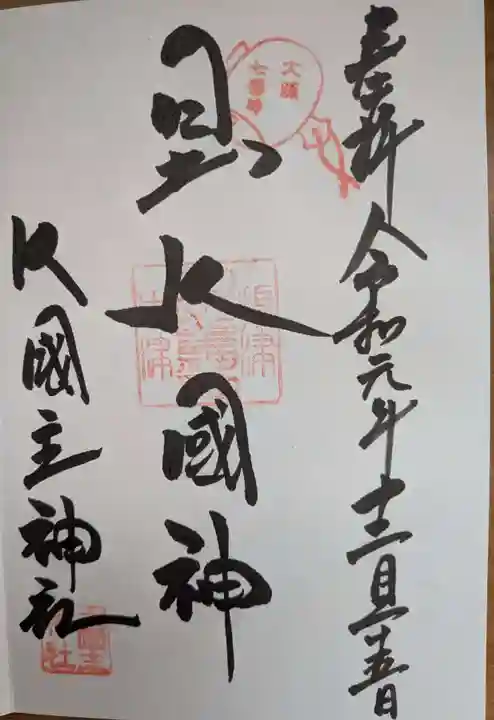 奉拝 令和元年十二月廿五日
大阪
七福神
日出大國神
大國主神社